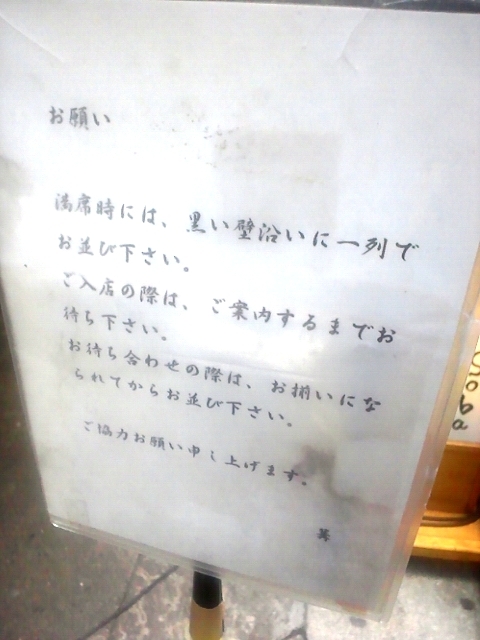 お願い
満席時には、黒い壁沿いに一列で
お並び下さい。
ご入店の際は、ご案内するまでお
待ち下さい。
お待ち合わせの際は、お揃いにな
られてからお並び下さい。
ご協力お願い申し上げます。
soba